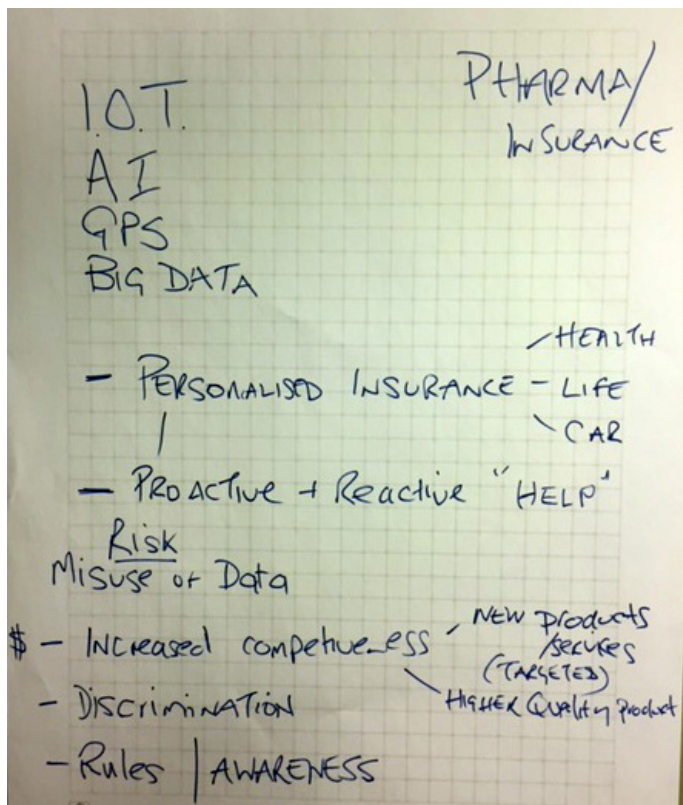 PHARMA/
INSURANCE
I.O.T.
AI
GPS
BIG DATA
- PERSONALISED INSURANCE - HEALTH
- LIFE
- CAR
- PROACTIVE + Reactive "HELP"
Risk
Misuse of Data
$ - INCREASED competiveness
NEW products
/services
(TARGETED)
HIGHER Quality product
- DISCRIMINATION
- Rules | AWARENESS